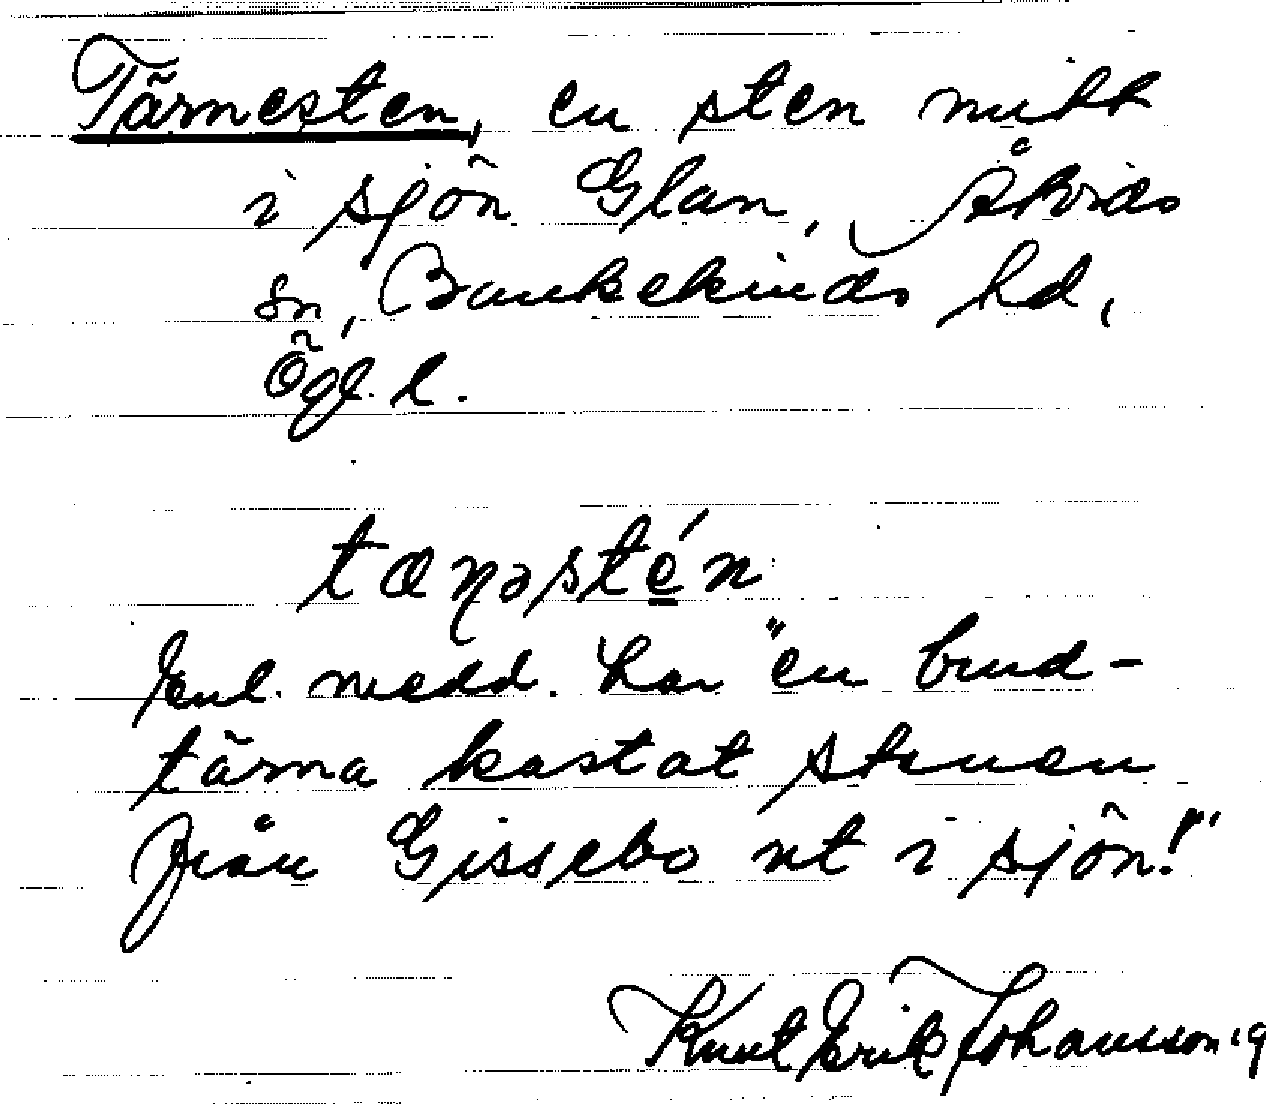 Tärnesten, en sten mitt
i sjön Glan, Åtvids
sn, Bankekinds hd,
Ögl. l.
tæṇəstén
Enl. medd. har "en brud-
tärna kastat stenen
från Gissebo ut i sjön!"
Knut Erik Johansson 19